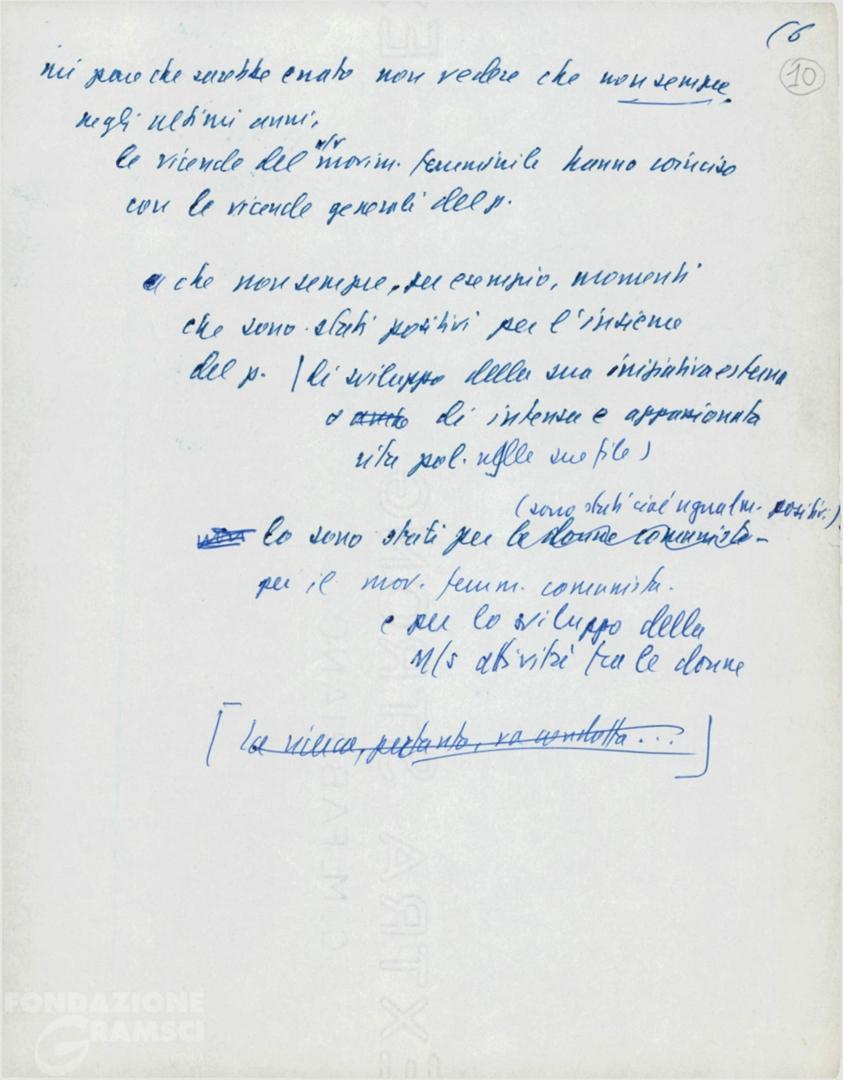 (6
10
mi pare che sarebbe errato non vedere che non sempre,
negli ultimi anni,
le vicende del n/s movim. femminile hanno coinciso
con le vicende generali del p.
e che non sempre, per esempio, momenti
che sono stati positivi per l'insieme
del p. (di sviluppo della sua iniziativa esterna
o anche di intensa e appassionata
vita pol. nelle sue file)
(sono stati cioè ugualm. positivi)
non lo sono stati per le donne comuniste
per il mov. femm. comunista.
e per lo sviluppo della
n/s attività tra le donne
[la ricerca, pertanto, va condotta...]
FONDAZIONE
GRAMSCI
EXTRA STRONG
C. M. FABRIANO